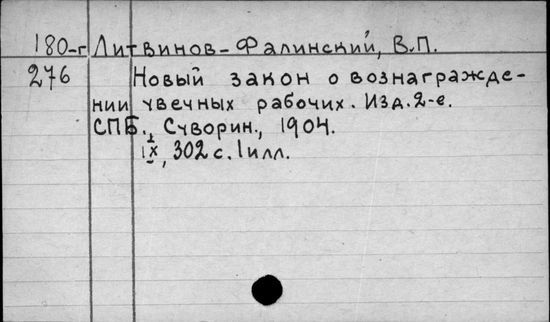 180-г Литвинов-Фалинский, В.П.
276 Новый закон о вознагражде-
нии увечных рабочих. Изд. 2-е.
СПБ., Суворин., 1904.
IX, 302 с. 1 илл.